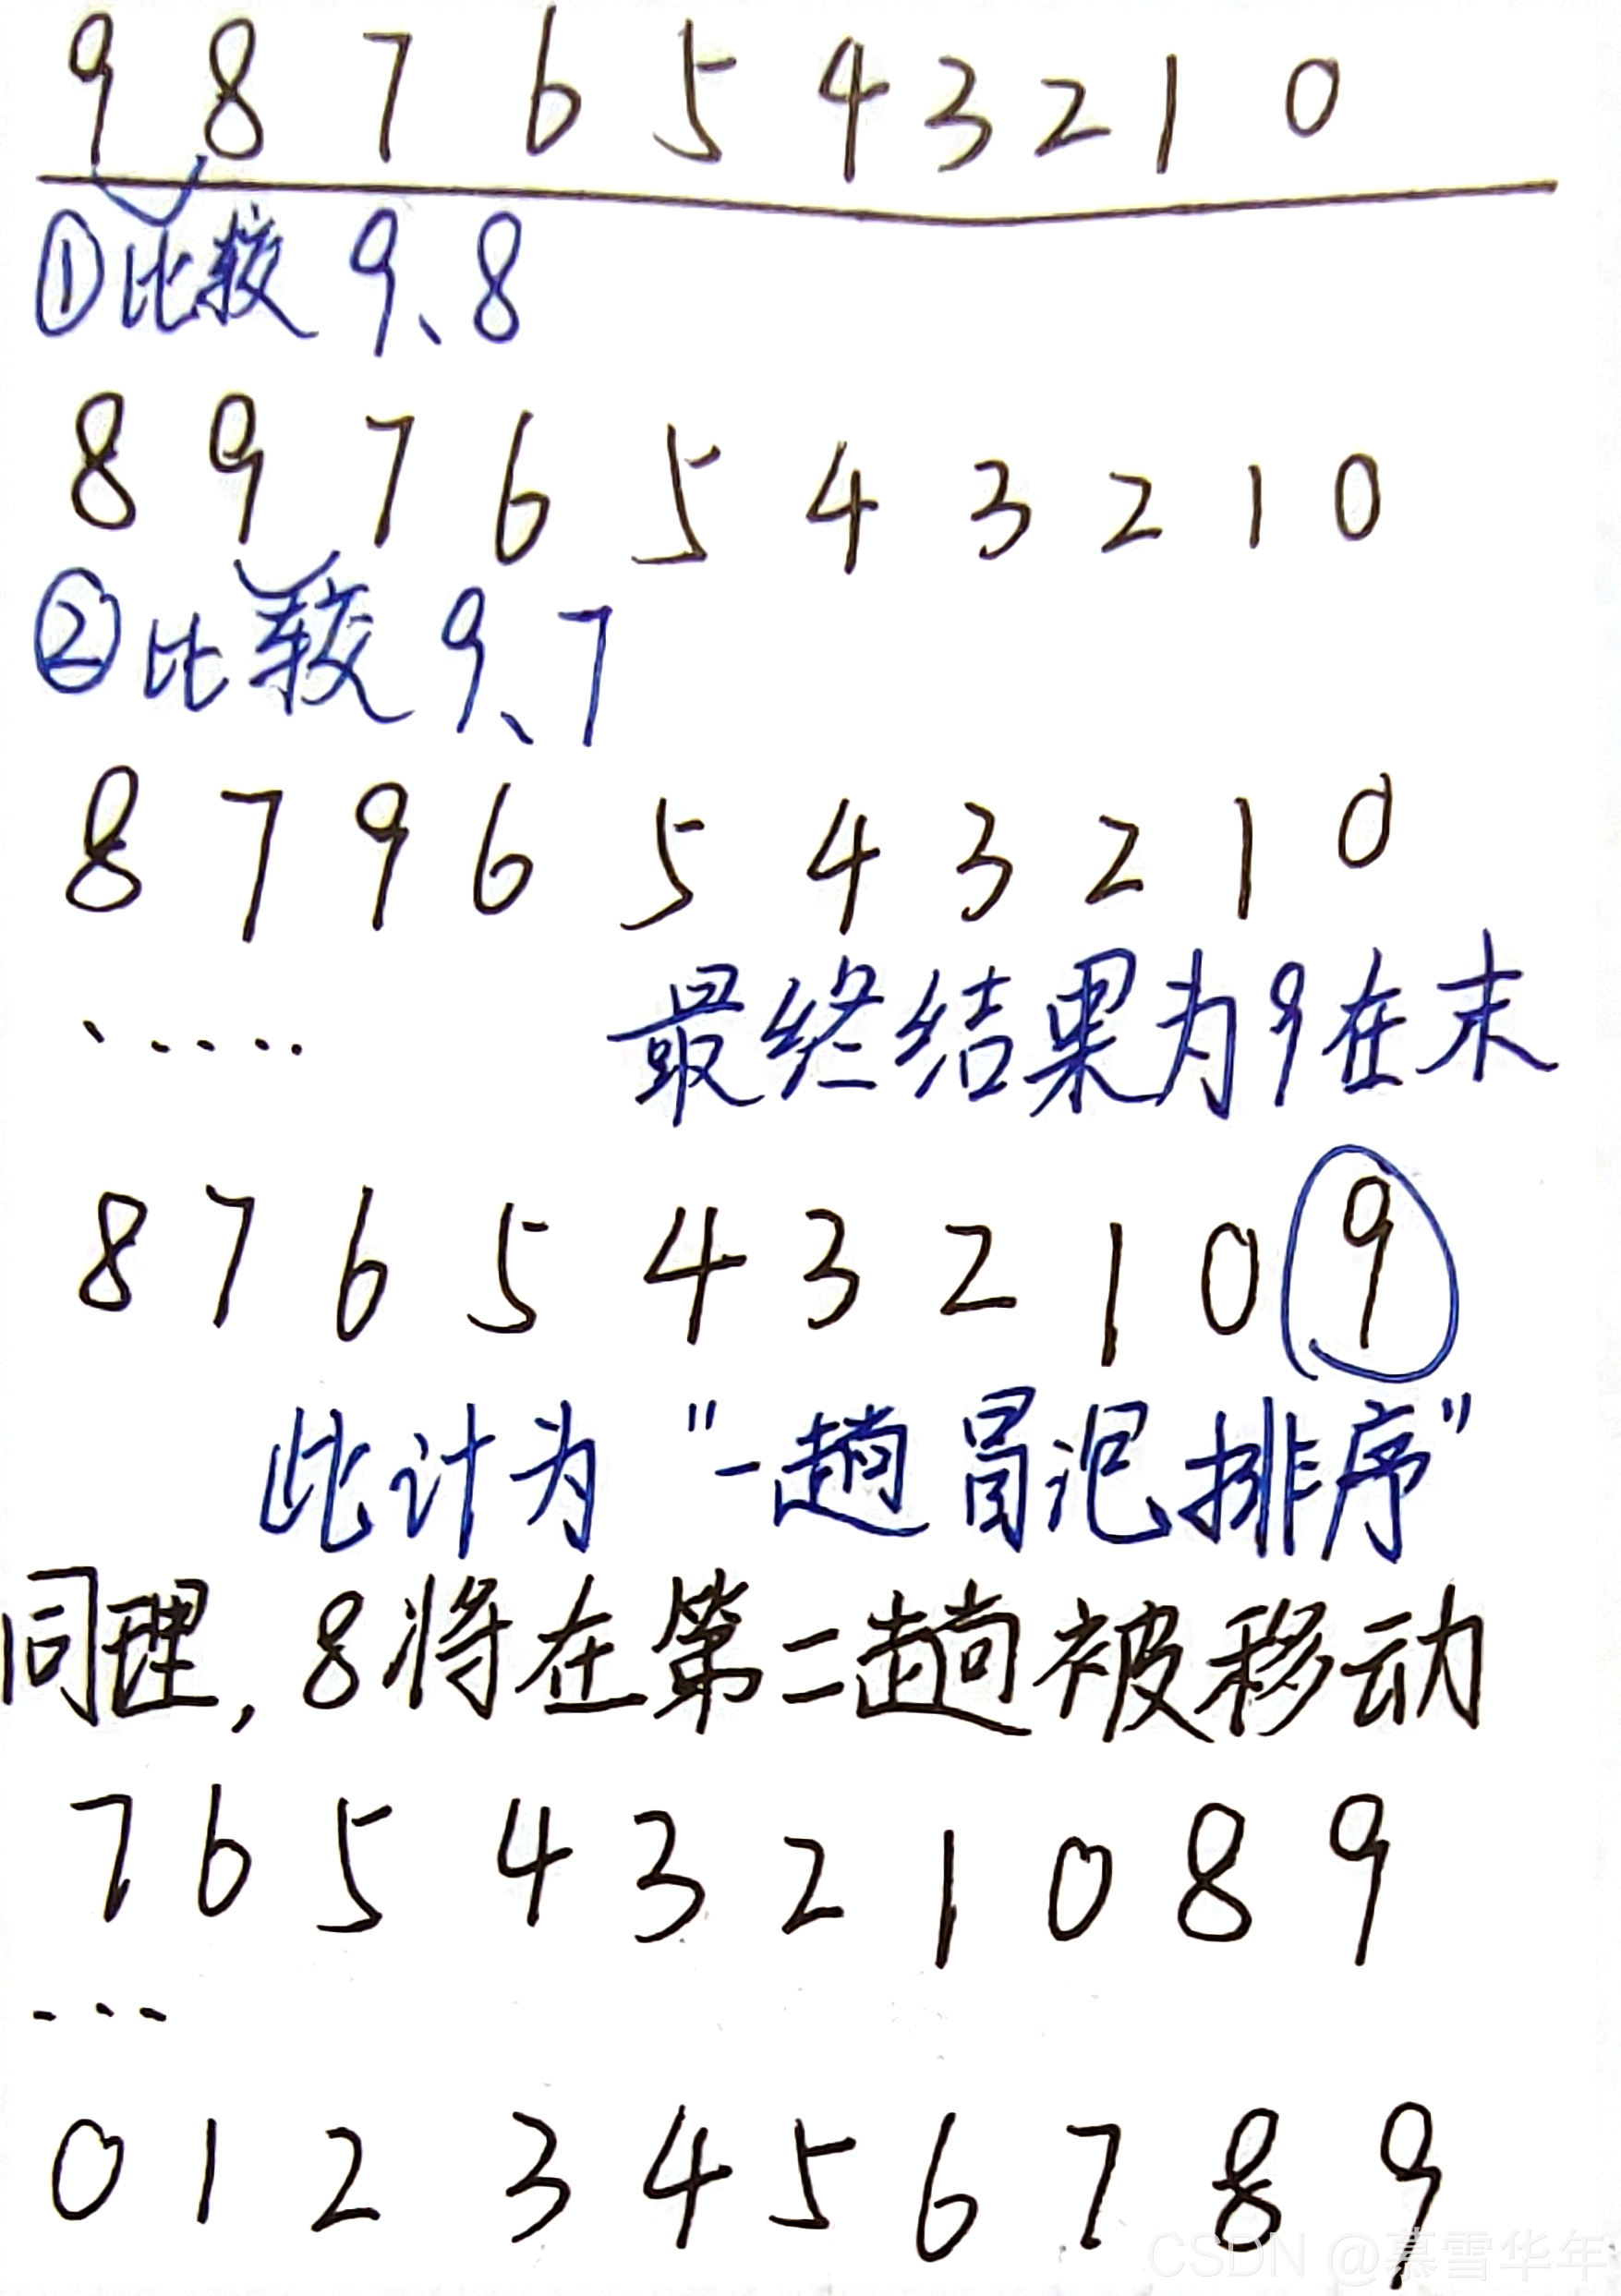 9 8 7 6 5 4 3 2 1 0
①比较 9、8
8 9 7 6 5 4 3 2 1 0
②比较 9、7
8 7 9 6 5 4 3 2 1 0
······ 最终结果为9在末
8 7 6 5 4 3 2 1 0 9
此计为“一趟冒泡排序”
同理,8将在第二趟被移动
7 6 5 4 3 2 1 0 8 9
···
0 1 2 3 4 5 6 7 8 9
CSDN @慕雪华年